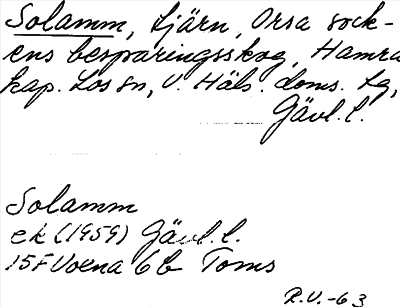 Solamm, tjärn, Orsa sock-
ens besparingsskog, Hamra
kap. Los sn, V. Häls. doms. tg,
Gävl. l.
Solamm
ek (1959) Gävl. l.
15F Voxna 6b Toms
R.V. -63